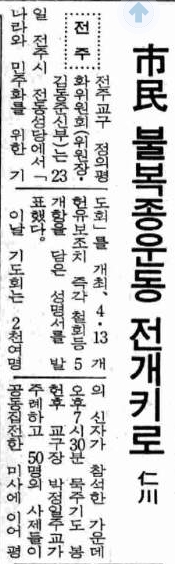 市民 불복종운동 전개키로 仁川
전주
전주교구 정의평
화위원회(위원장·
김봉준신부)는 23
일 전주시 전동성당에서 「
나라와 민주화를 위한 기
도회」를 개최, 4·13 개
헌유보조치 즉각 철회등 5
개항을 담은 성명서를 발
표했다.
이날 기도회는 2천여명
의 신자가 참석한 가운데
오후 7시30분 묵주기도 봉
헌후 교구장 박정일주교가
주례하고 50명의 사제들이
공동집전한 미사에 이어 평